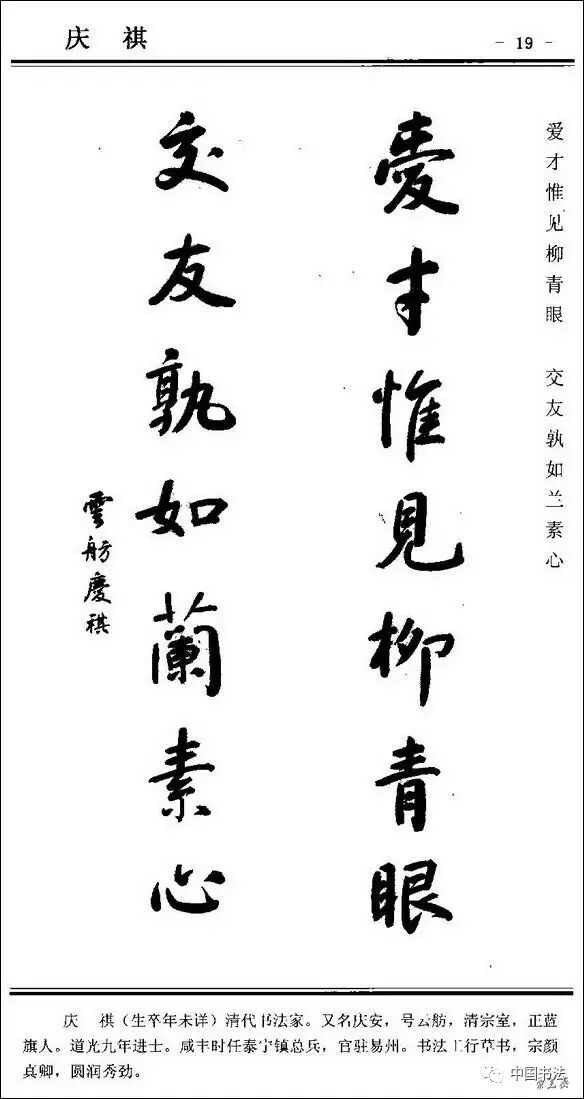 庆 祺
- 19 -
爱才惟见柳青眼 交友孰如兰素心
愛才惟見柳青眼
交友孰如蘭素心
雲舫慶祺
庆 祺（生卒年未详）清代书法家。又名庆安，号云舫，清宗室，正蓝
旗人。道光九年进士。咸丰时任泰宁镇总兵，官驻易州。书法工行草书，宗颜
真卿，圆润秀劲。
中国书法